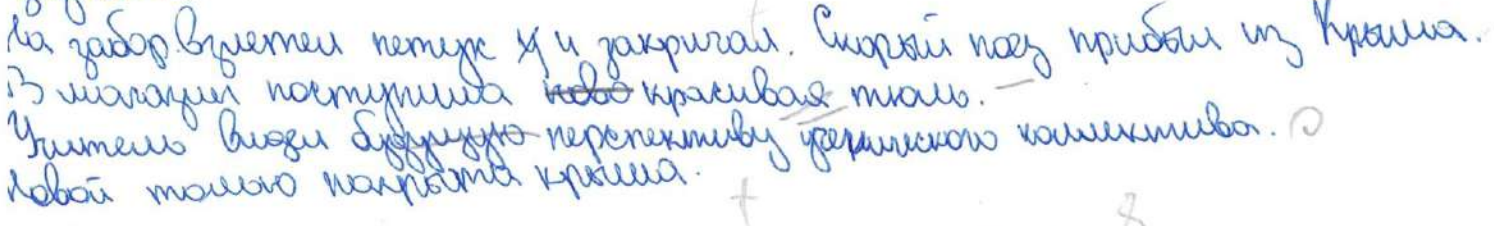 На забор взлетел петух и закричал. Скорый поез прибыл из Крыма.
В магазин поступила ново красивая тюль.
Учитель види будующую перспективу ученического коллектива.
Новой толью покрыта крыша.